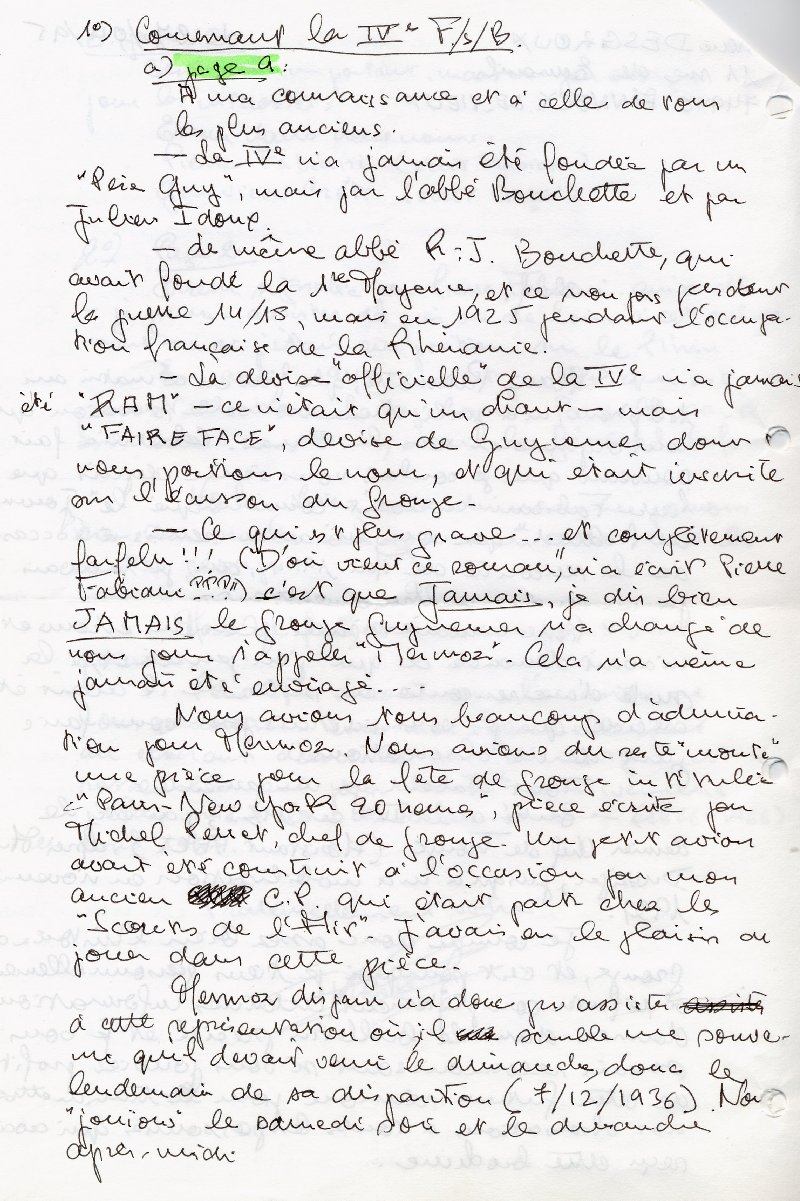 1°) Concernant la IVe F/s/B.
a) page 9:
A ma connaissance et à celle de tous
les plus anciens.
— La IVe n'a jamais été fondée par un
"Père Guy", mais par l'abbé Bouchette et par
Julien Idoux.
— Le même abbé R.J. Bouchette, qui
avait fondé la 1re Mayence, et ce non pas pendant
la guerre 14/18, mais en 1925 pendant l'occupa-
tion française de la Rhénanie.
— La devise "officielle" de la IVe n'a jamais
été "RAM" - ce n'était qu'un chant - mais
"FAIRE FACE", devise de Guynemer dont
nous portions le nom et qui était inscrite
sur l'écusson du groupe.
— Ce qui est plus grave... et complètement
farfelu!!! ("D'où vient ce roman", m'a écrit Pierre
Fabiani ????) c'est que Jamais, je dis bien
JAMAIS le groupe Guynemer n'a changé de
nom pour s'appeler "Mermoz". Cela n'a même
jamais été envisagé...
Nous avions tous beaucoup d'admira-
tion pour Mermoz. Nous avions du reste "monté"
une pièce pour la fête de groupe intitulée
"Paris-New York 20 heures", pièce écrite par
Michel Perret chef de groupe. Un petit avion
avait été construit à l'occasion par mon
ancien C.P. qui était parti chez les
"Scouts de l'Air". J'avais eu le plaisir de
jouer dans cette pièce.
Mermoz disparu n'a donc pas assisté
à cette représentation où il semble me souve-
nir qu'il devait venir le dimanche, donc le
lendemain de sa disparition (7/12/1936). Nous
"jouions" le samedi soir et le dimanche
après-midi.